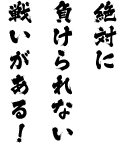 絶対に
負けられない
戦いがある!